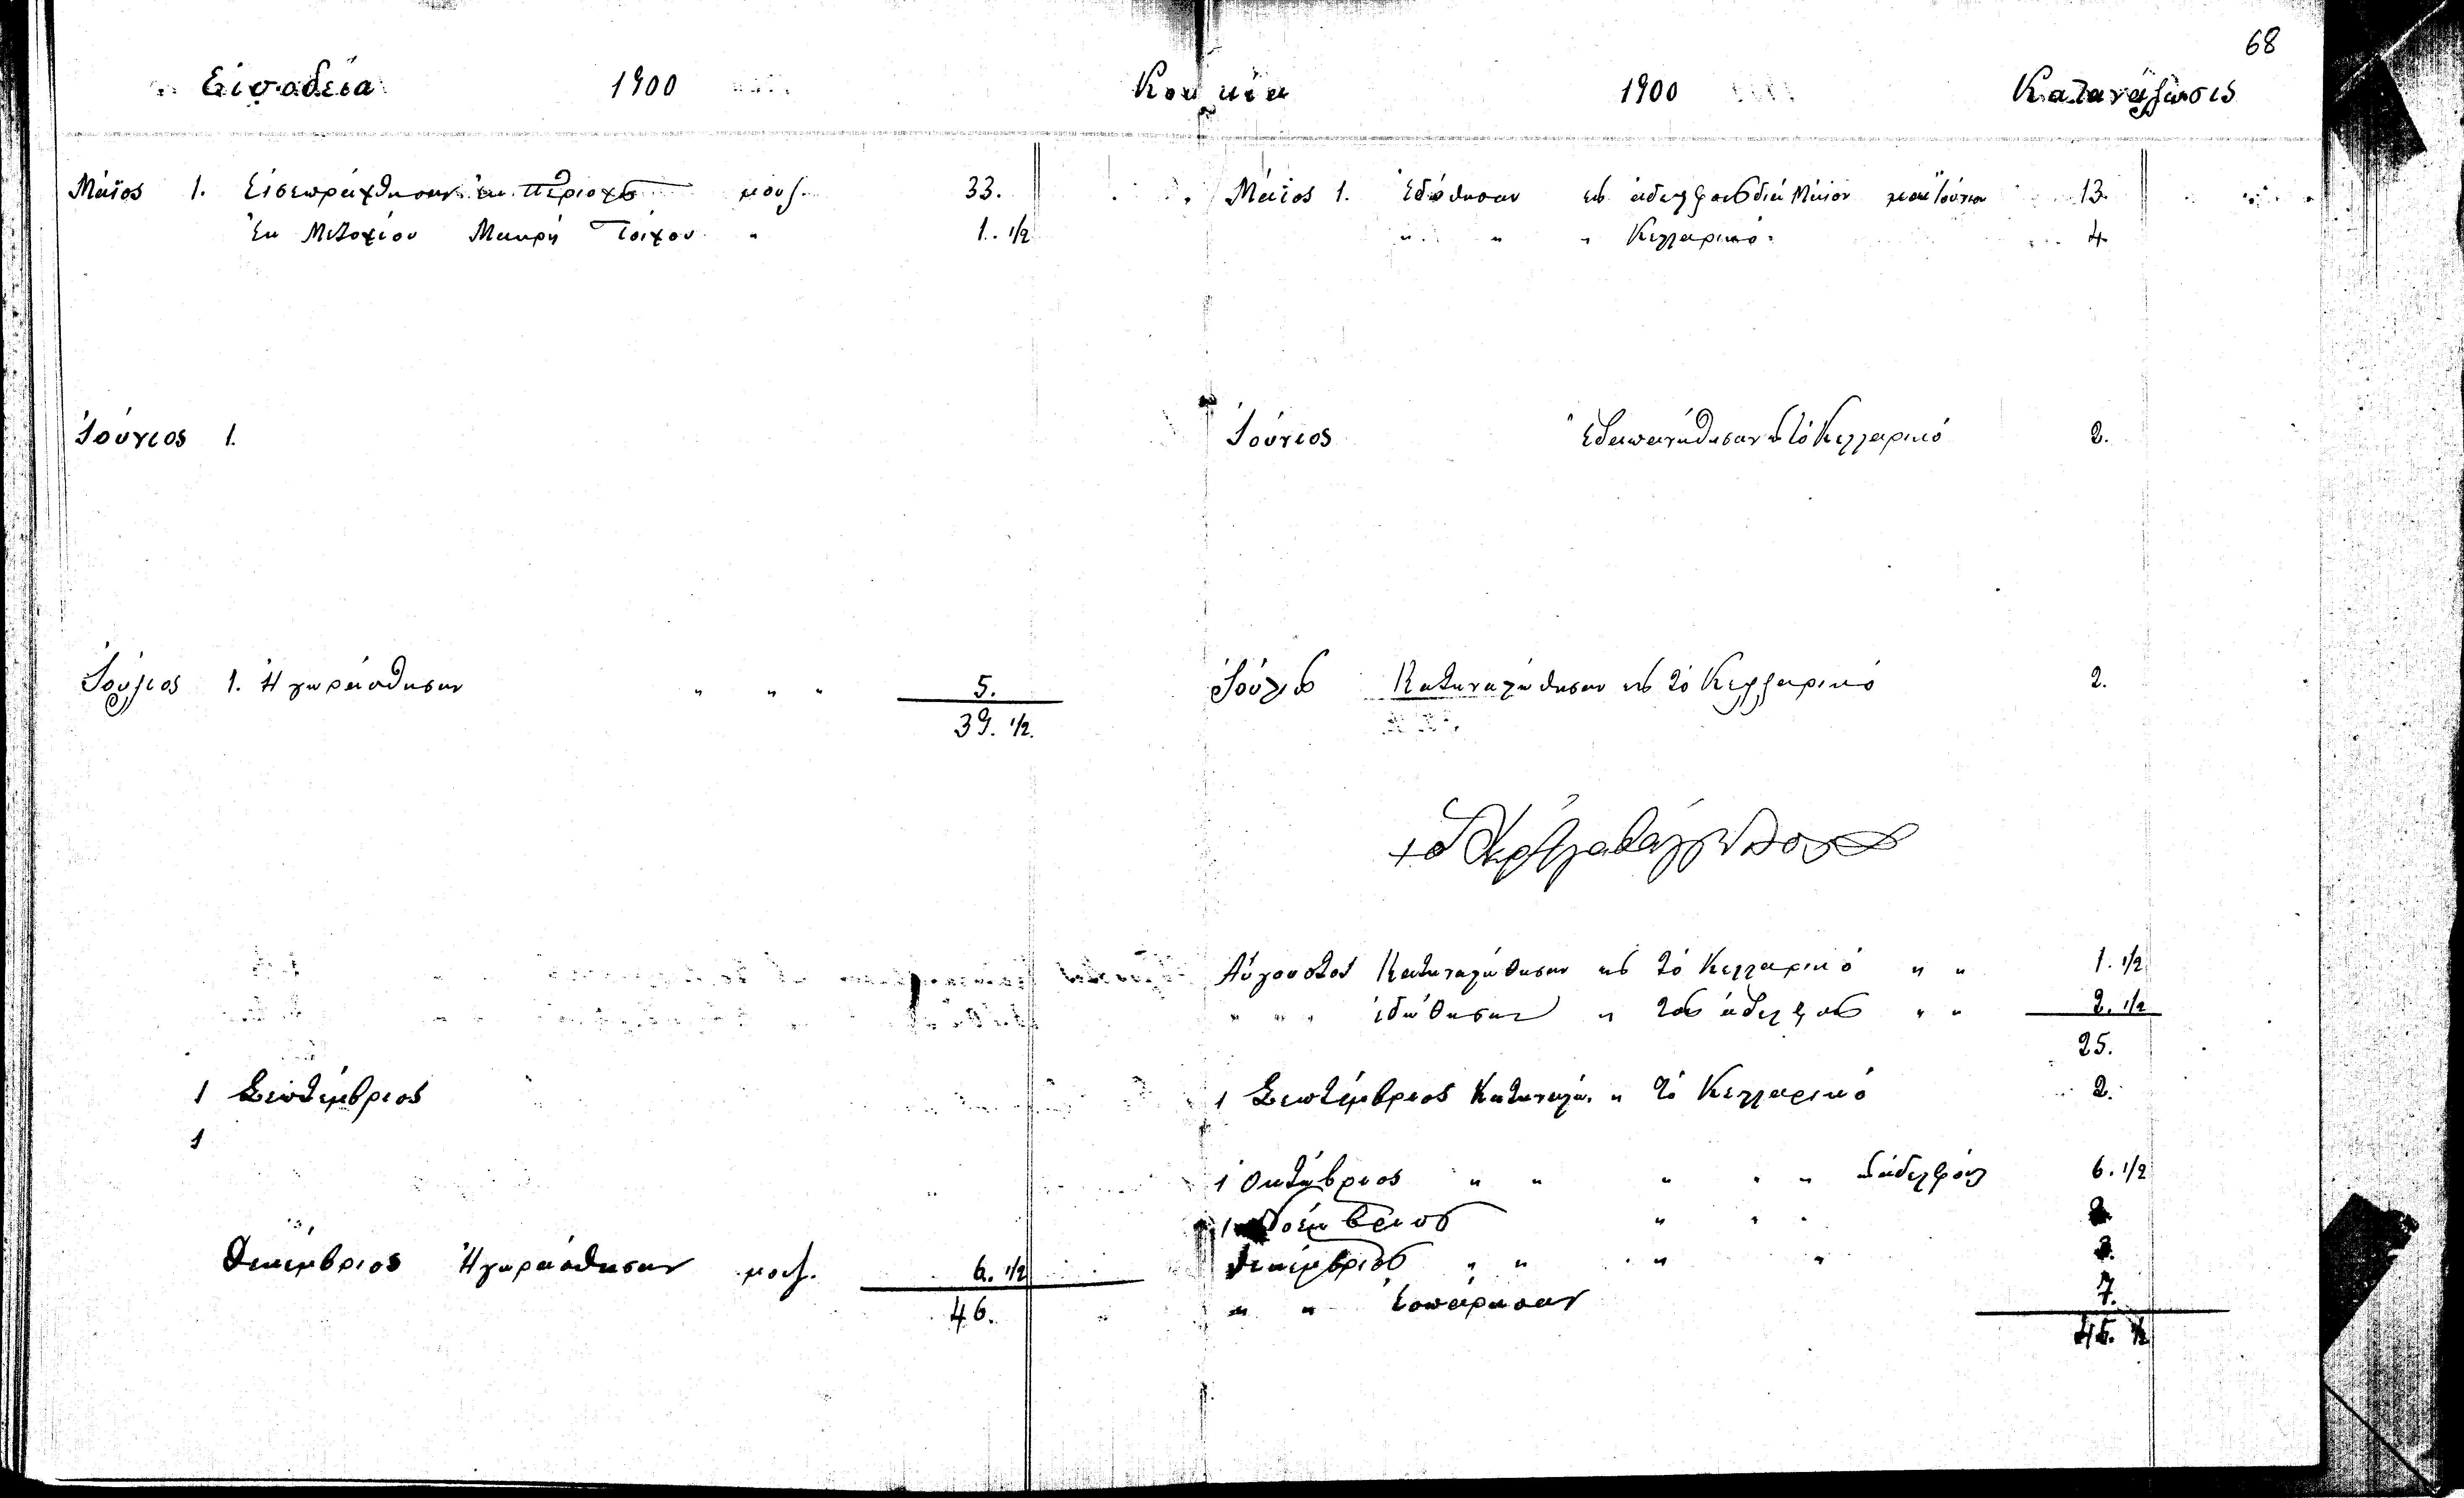 68
Εἰσοδεία 1900 Κουκκία 1900 Κατανάλωσις
Μάϊος 1. Εἰσεπράχθησαν ἐκ περιοχῆς μουζ. 33.
Ἐκ Μετοχίου Μακρὺ Τοίχου " 1. 1/2
Ἰούνιος 1.
Ἰούλιος 1. Ἠγοράσθησαν " " " 5.
39. 1/2.
1 Σεπτέμβριος
1
Δεκέμβριος Ἠγοράσθησαν μουζ. 6. 1/2
46.
Μάϊος 1. Ἐδόθησαν εἰς ἀδελφοὺς διὰ Μάϊον καὶ Ἰούνιον 13.
" " " Κελλαρικό. 4
Ἰούνιος Ἐδαπανήθησαν εἰς τὸ Κελλαρικό 2.
Ἰούλιος Κατηναλώθησαν εἰς τὸ Κελλαρικό 2.
Αὔγουστος Κατηναλώθησαν εἰς τὸ Κελλαρικό " " 1. 1/2
" " " ἐδώθησαν " τοὺς ἀδελφοὺς " " 2. 1/2
25.
1 Σεπτέμβριος Κατηναλώ. " τὸ Κελλαρικό 2.
1 Ὀκτώβριος " " " " " ἀδελφούς 6. 1/2
1 Νοέμβριος " " "
Δεκέμβριος " " " " 3.
" " Ἐσπάρησαν 7.
45. 1/2